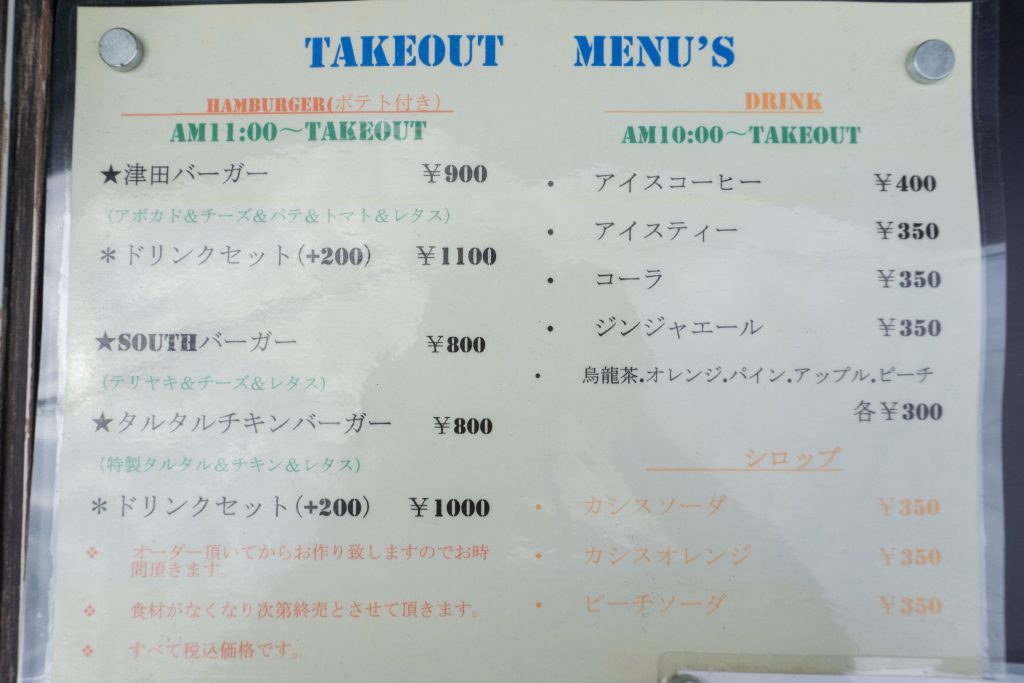 TAKEOUT MENU'S
HAMBURGER(ポテト付き)
AM11:00～TAKEOUT
★津田バーガー ￥900
(アボカド&チーズ&パテ&トマト&レタス)
＊ドリンクセット(+200) ￥1100
★SOUTHバーガー ￥800
(テリヤキ&チーズ&レタス)
★タルタルチキンバーガー ￥800
(特製タルタル&チキン&レタス)
＊ドリンクセット(+200) ￥1000
❖ オーダー頂いてからお作り致しますのでお時
間頂きます。
❖ 食材がなくなり次第終売とさせて頂きます。
❖ すべて税込価格です。
DRINK
AM10:00～TAKEOUT
• アイスコーヒー ￥400
• アイスティー ￥350
• コーラ ￥350
• ジンジャエール ￥350
• 烏龍茶.オレンジ.パイン.アップル.ピーチ
各￥300
シロップ
• カシスソーダ ￥350
• カシスオレンジ ￥350
• ピーチソーダ ￥350